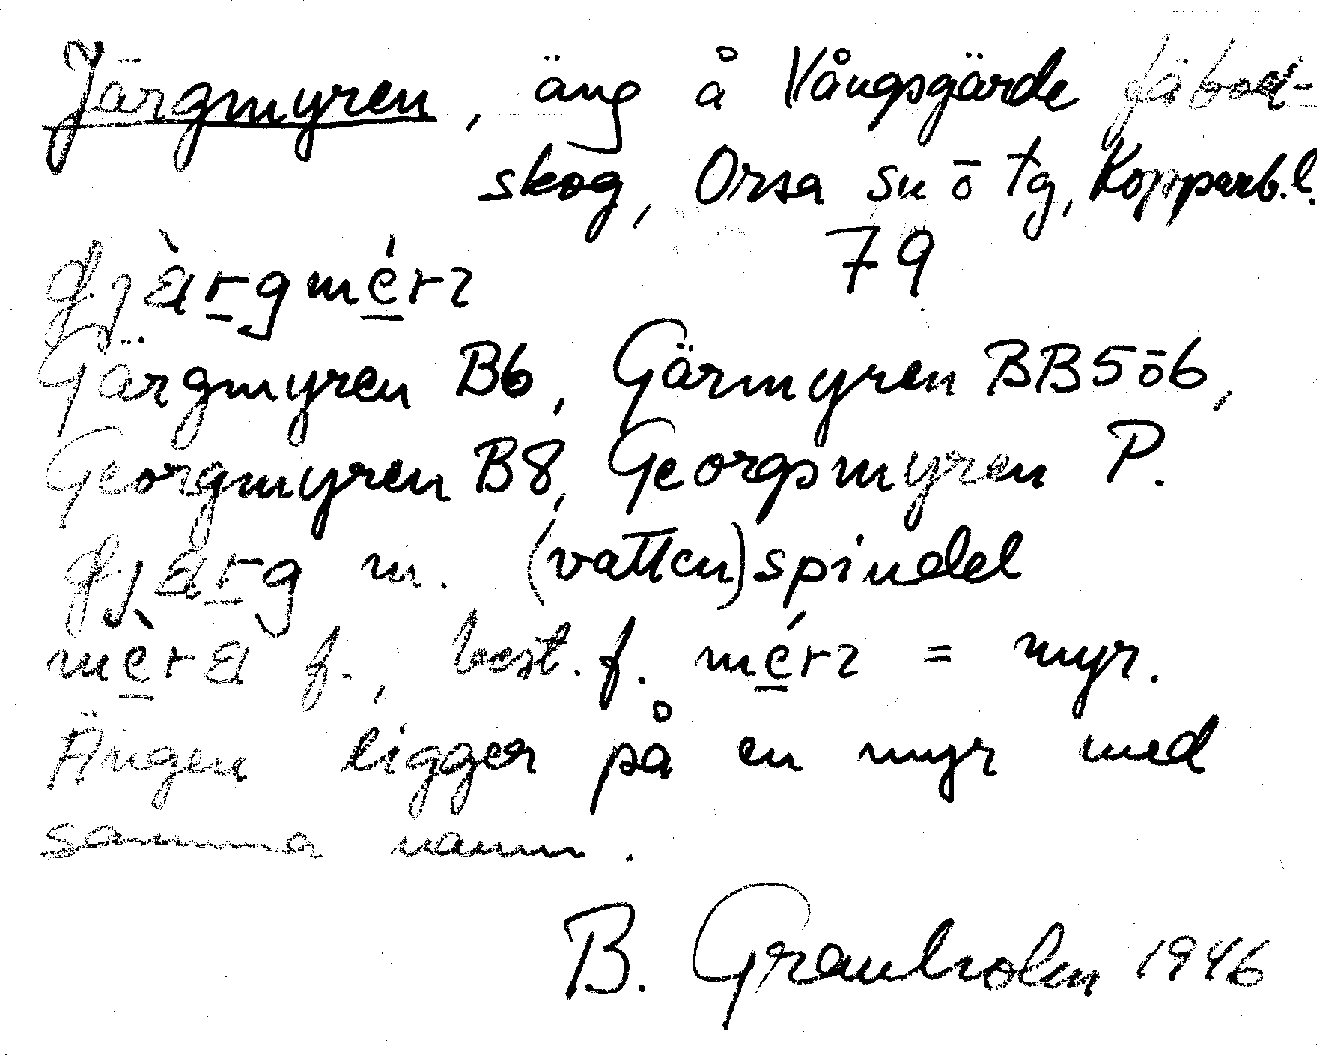 Järgmyren, äng å Vångsgärde fäbod-
skog, Orsa sn o tg, Kopparb.l.
79
Gärgmyren B6, Gärmyren BB5ö6,
Georgmyren B8, Georgsmyren P.
m. (vatten)spindel
f., best. f. = myr.
Ängen ligger på en myr med
samma namn.
B. Granholm 1946